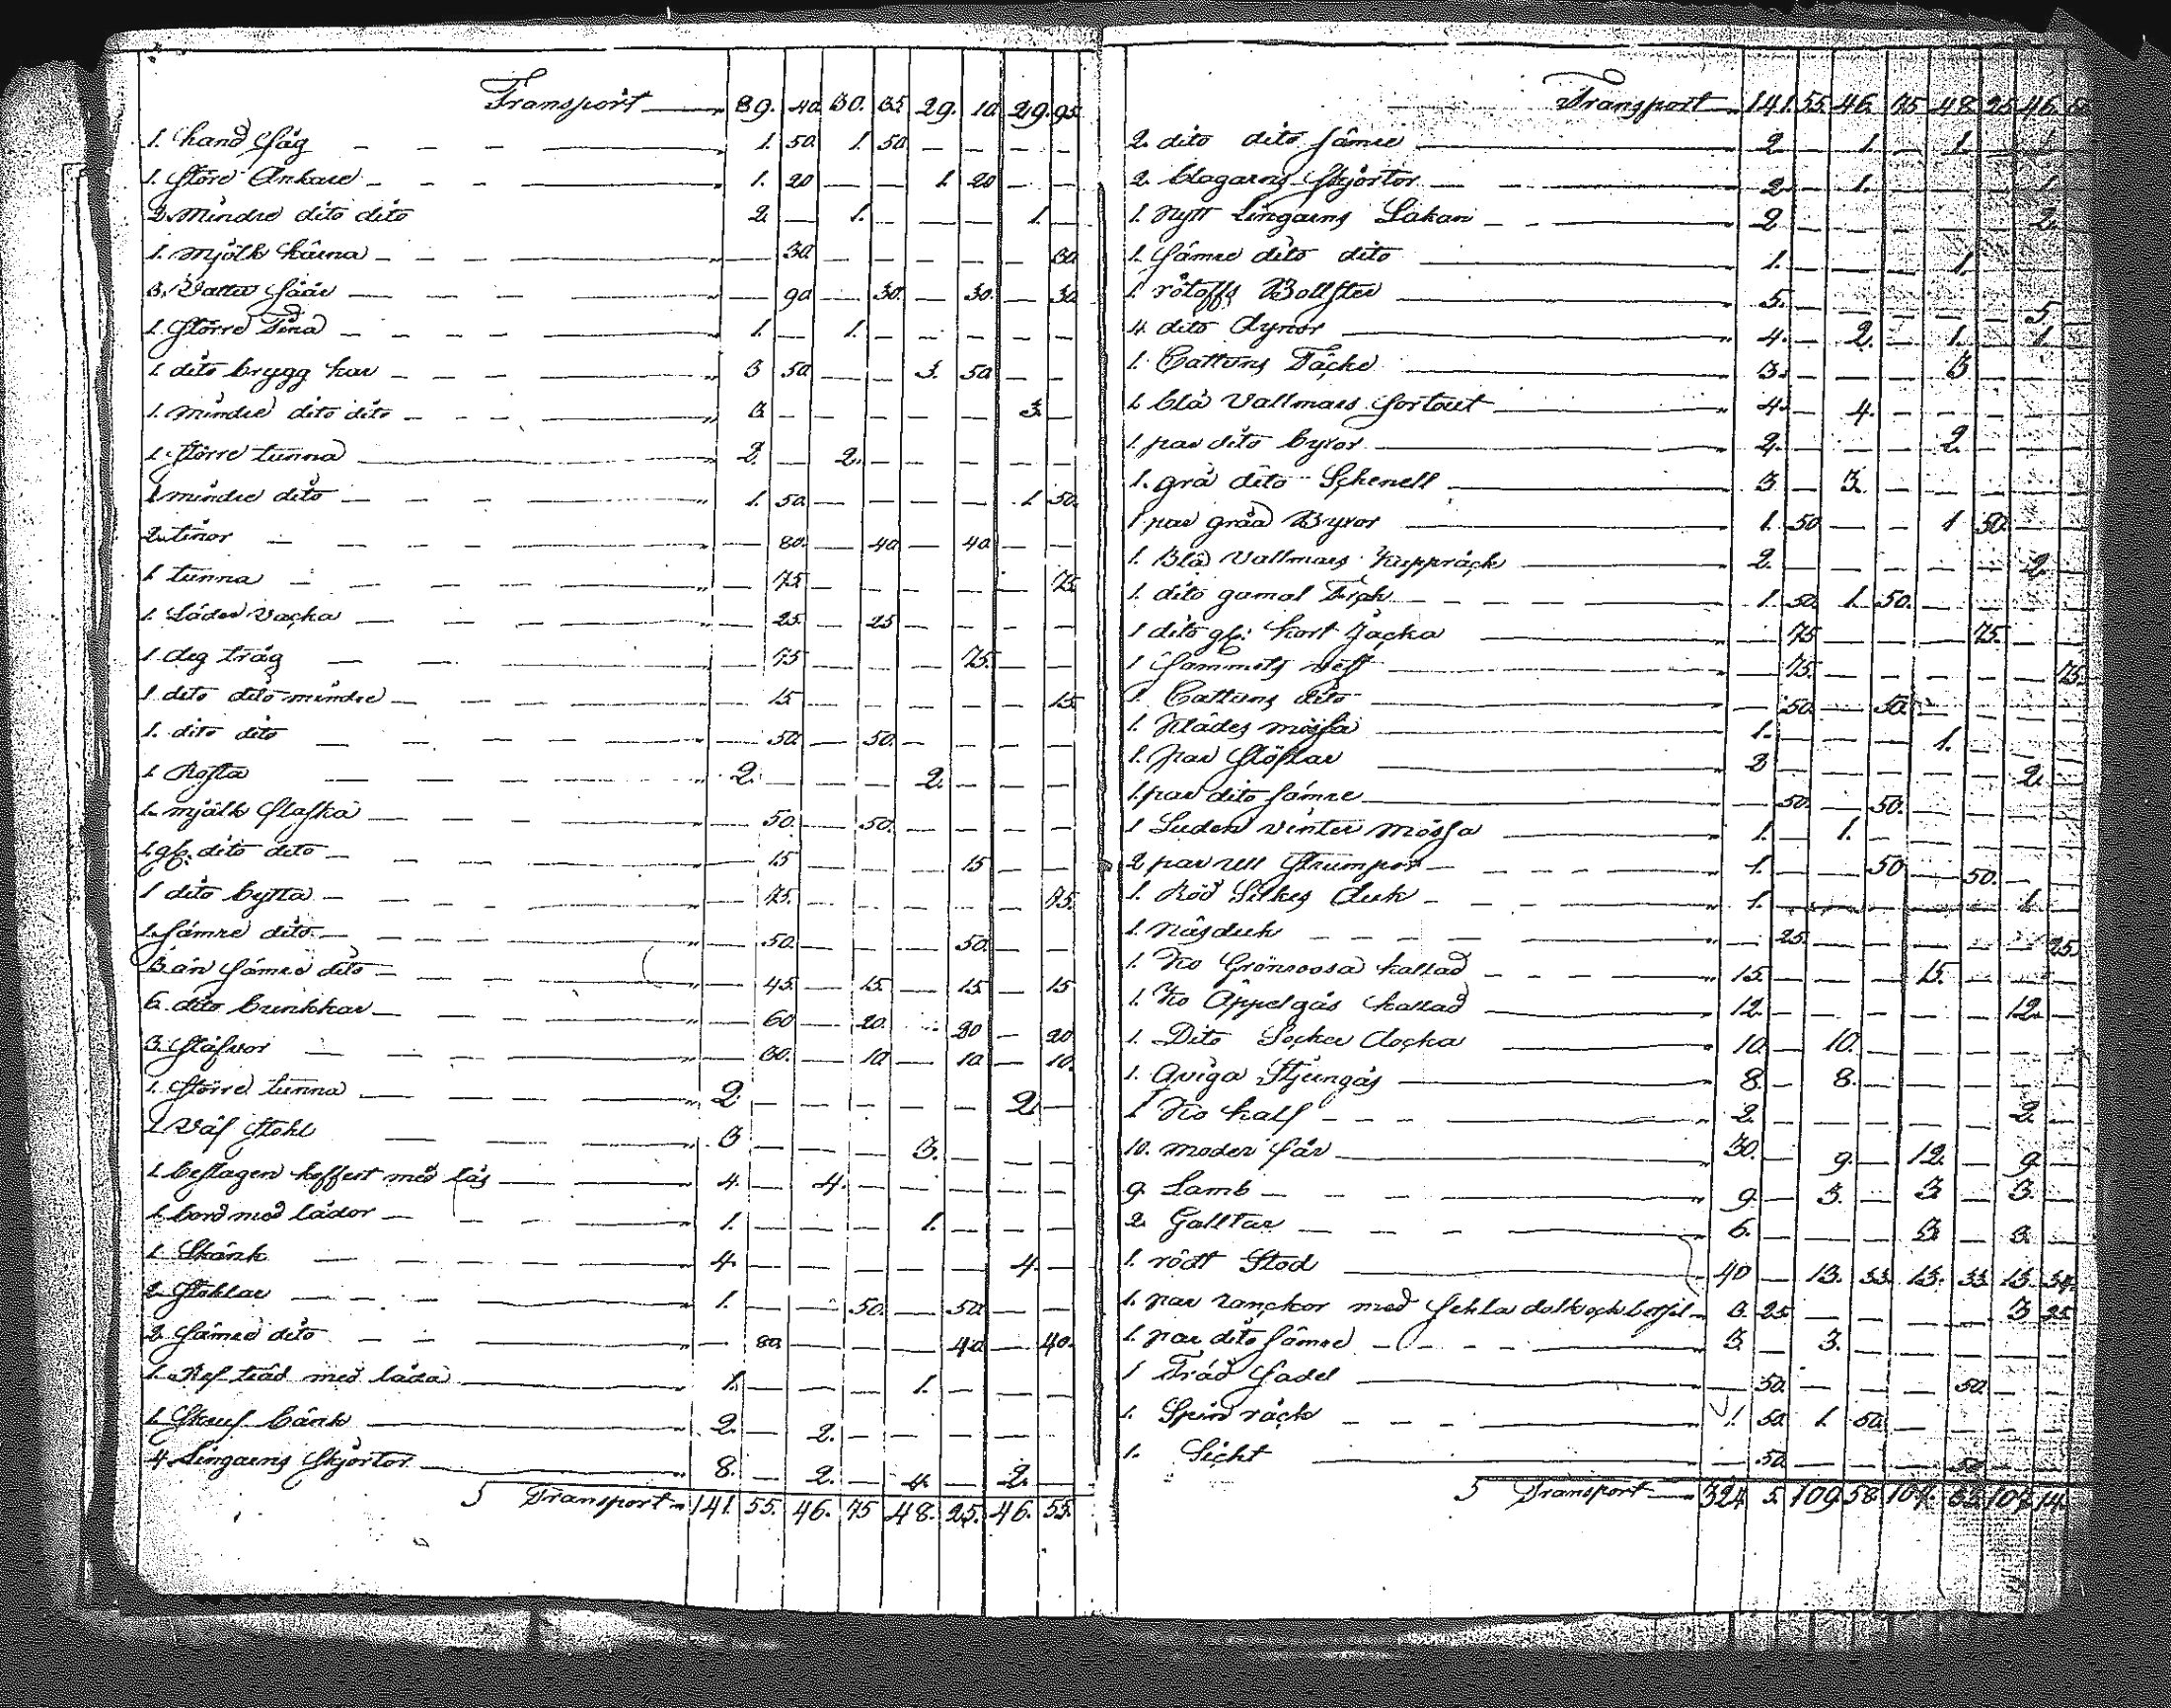 Transport — 89. 40. 30. 35. 29. 10. 29. 95.
1. hand Såg — 1. 50. 1. 50. — — — —
1. Störe Ankare — 1. 20 — — 1. 20 — —
2. Mindre dito dito 2. — 1. — — — 1. —
1. Mjölk kärna — — 30. — — — — — 30.
3. Vatten Såär — — 90 — 30. — 30. — 30
1. Större Tina — 1. — 1. — — — — —
1. dito brygg kar — 3 50 — — 3. 50 — —
1. mindre dito dito — 3. — — — — — 3. —
1. Större tunna — 2. — 2. — — — — —
1 mindre dito — 1. 50. — — — — 1 50.
2 tinor — — 80. — 40 — 40. — —
1 tunna — — 75 — — — — — 75.
1. Läder Vacka — — 25. — 25 — — — —
1 deg tråg — — 75 — — — 75. — —
1 dito dito mindre — — 15 — — — — — 15.
1. dito dito — — 50. — 50. — — — —
1 Rosta — 2. — — — 2. — — —
1. mjölk flaska — — 50. — 50. — — — —
1. gl. dito dito — — 15 — — — 15 — —
1 dito bytta — — 75. — — — — — 75.
1. Sämre dito — — 50. — — — 50. — —
3. än Sämre dito — — 45. — 15. — 15 — 15
6. dito bunkkar — — 60 — 20. — 20 — 20
3. Stäfvor — — 30. — 10 — 10 — 10.
1. Större tunna — 2. — — — — — 2. —
1 Väf Stohl — 3 — — — 3. — — —
1. beslagen koffert med lås — 4. — 4. — — — — —
1. bord med lådor — 1. — — — 1. — — —
1. Skänk — 4. — — — — — 4. —
2. Stohlar — 1. — — 50. — 50. — —
2. Sämre dito — — 80. — — — 40. — 40.
1. Ref träd med låda — 1. — — — 1. — — —
1. Skruf bänk — 2. — 2. — — — — —
4. Lingarns Skjortor — 8. — 2. — 4. — 2. —
5 Transport — 141. 55. 46. 75 48. 25. 46. 55.
Transport — 141. 55. 46. 75 48. 25 46.
2. dito dito Sämre — 2 — 1. — 1. — 1
2. blagarns Skjortor — 2 — 1. — — — 1
1. nytt Lingarns Lakan — 2 — — — — — 2.
1. Sämre dito dito — 1. — — — 1. — —
1 Bollster — 5. — — — — — 5 —
4. dito dynor — 4. — 2. — 1. — 1 —
1. Cattuns Täcke — 3. — — — 3 — —
1. blå Vallmars Sortout — 4. — 4. — — — — —
1. par dito byxor — 2. — — — 2. — —
1. grå dito Schenell — 3 — 3. — — — —
1 par gråa Byxor — 1. 50 — — 1 50. — —
1. Blå Vallmars — 2. — — — — — 2. —
1. dito gamal — 1. 50. 1. 50. — — — —
1 dito gl: kort Jacka — — 75 — — — 75. — —
1 Sammets väst — — 75. — — — — — 75.
1. Cattuns dito — — 50. — 50 — — — —
1. Klädes mössa — 1. — — — 1. — —
1. par Stöflar — 2 — — — — — 2. —
1. par dito Sämre — — 50. — 50. — — — —
1 Luden Vinter mössa — 1. — 1. — — — — —
2 par ull Strumpor — 1. — — 50 — 50. — —
1. Röd Silkes duk — 1. — — — — — 1. —
1. näsduk — — 25. — — — — — 25.
1. Ko Grönroosa kallad — 15. — — — 15. — — —
1. Ko Äppelgås kallad — 12. — — — — — 12. —
1. Dito Socker docka — 10. — 10. — — — — —
1. Qviga Stjerngås — 8. — 8. — — — — —
1 Ko kalf — 2. — — — — — 2. —
10. moder får — 30. — 9. — 12. — 9. —
9. Lamb — 9. — 3. — 3 — 3. —
2. Galltar — 6. — — — 3. — 3. —
1. rödt Stod — 40 — 13. 33. 13. 33. 13. 34.
1. par ranckor med — 3. 25 — — — — 3 25
1. par dito Sämre — 3. — 3. — — — — —
1 Träd Sadel — — 50. — — — 50. — —
1. Spin räck — 1. 50. 1. 50. — — — —
1. Sickt — — 50. — — — 50 — —
5 Transport — 324. 5. 109. 58. 107. 107. 14.